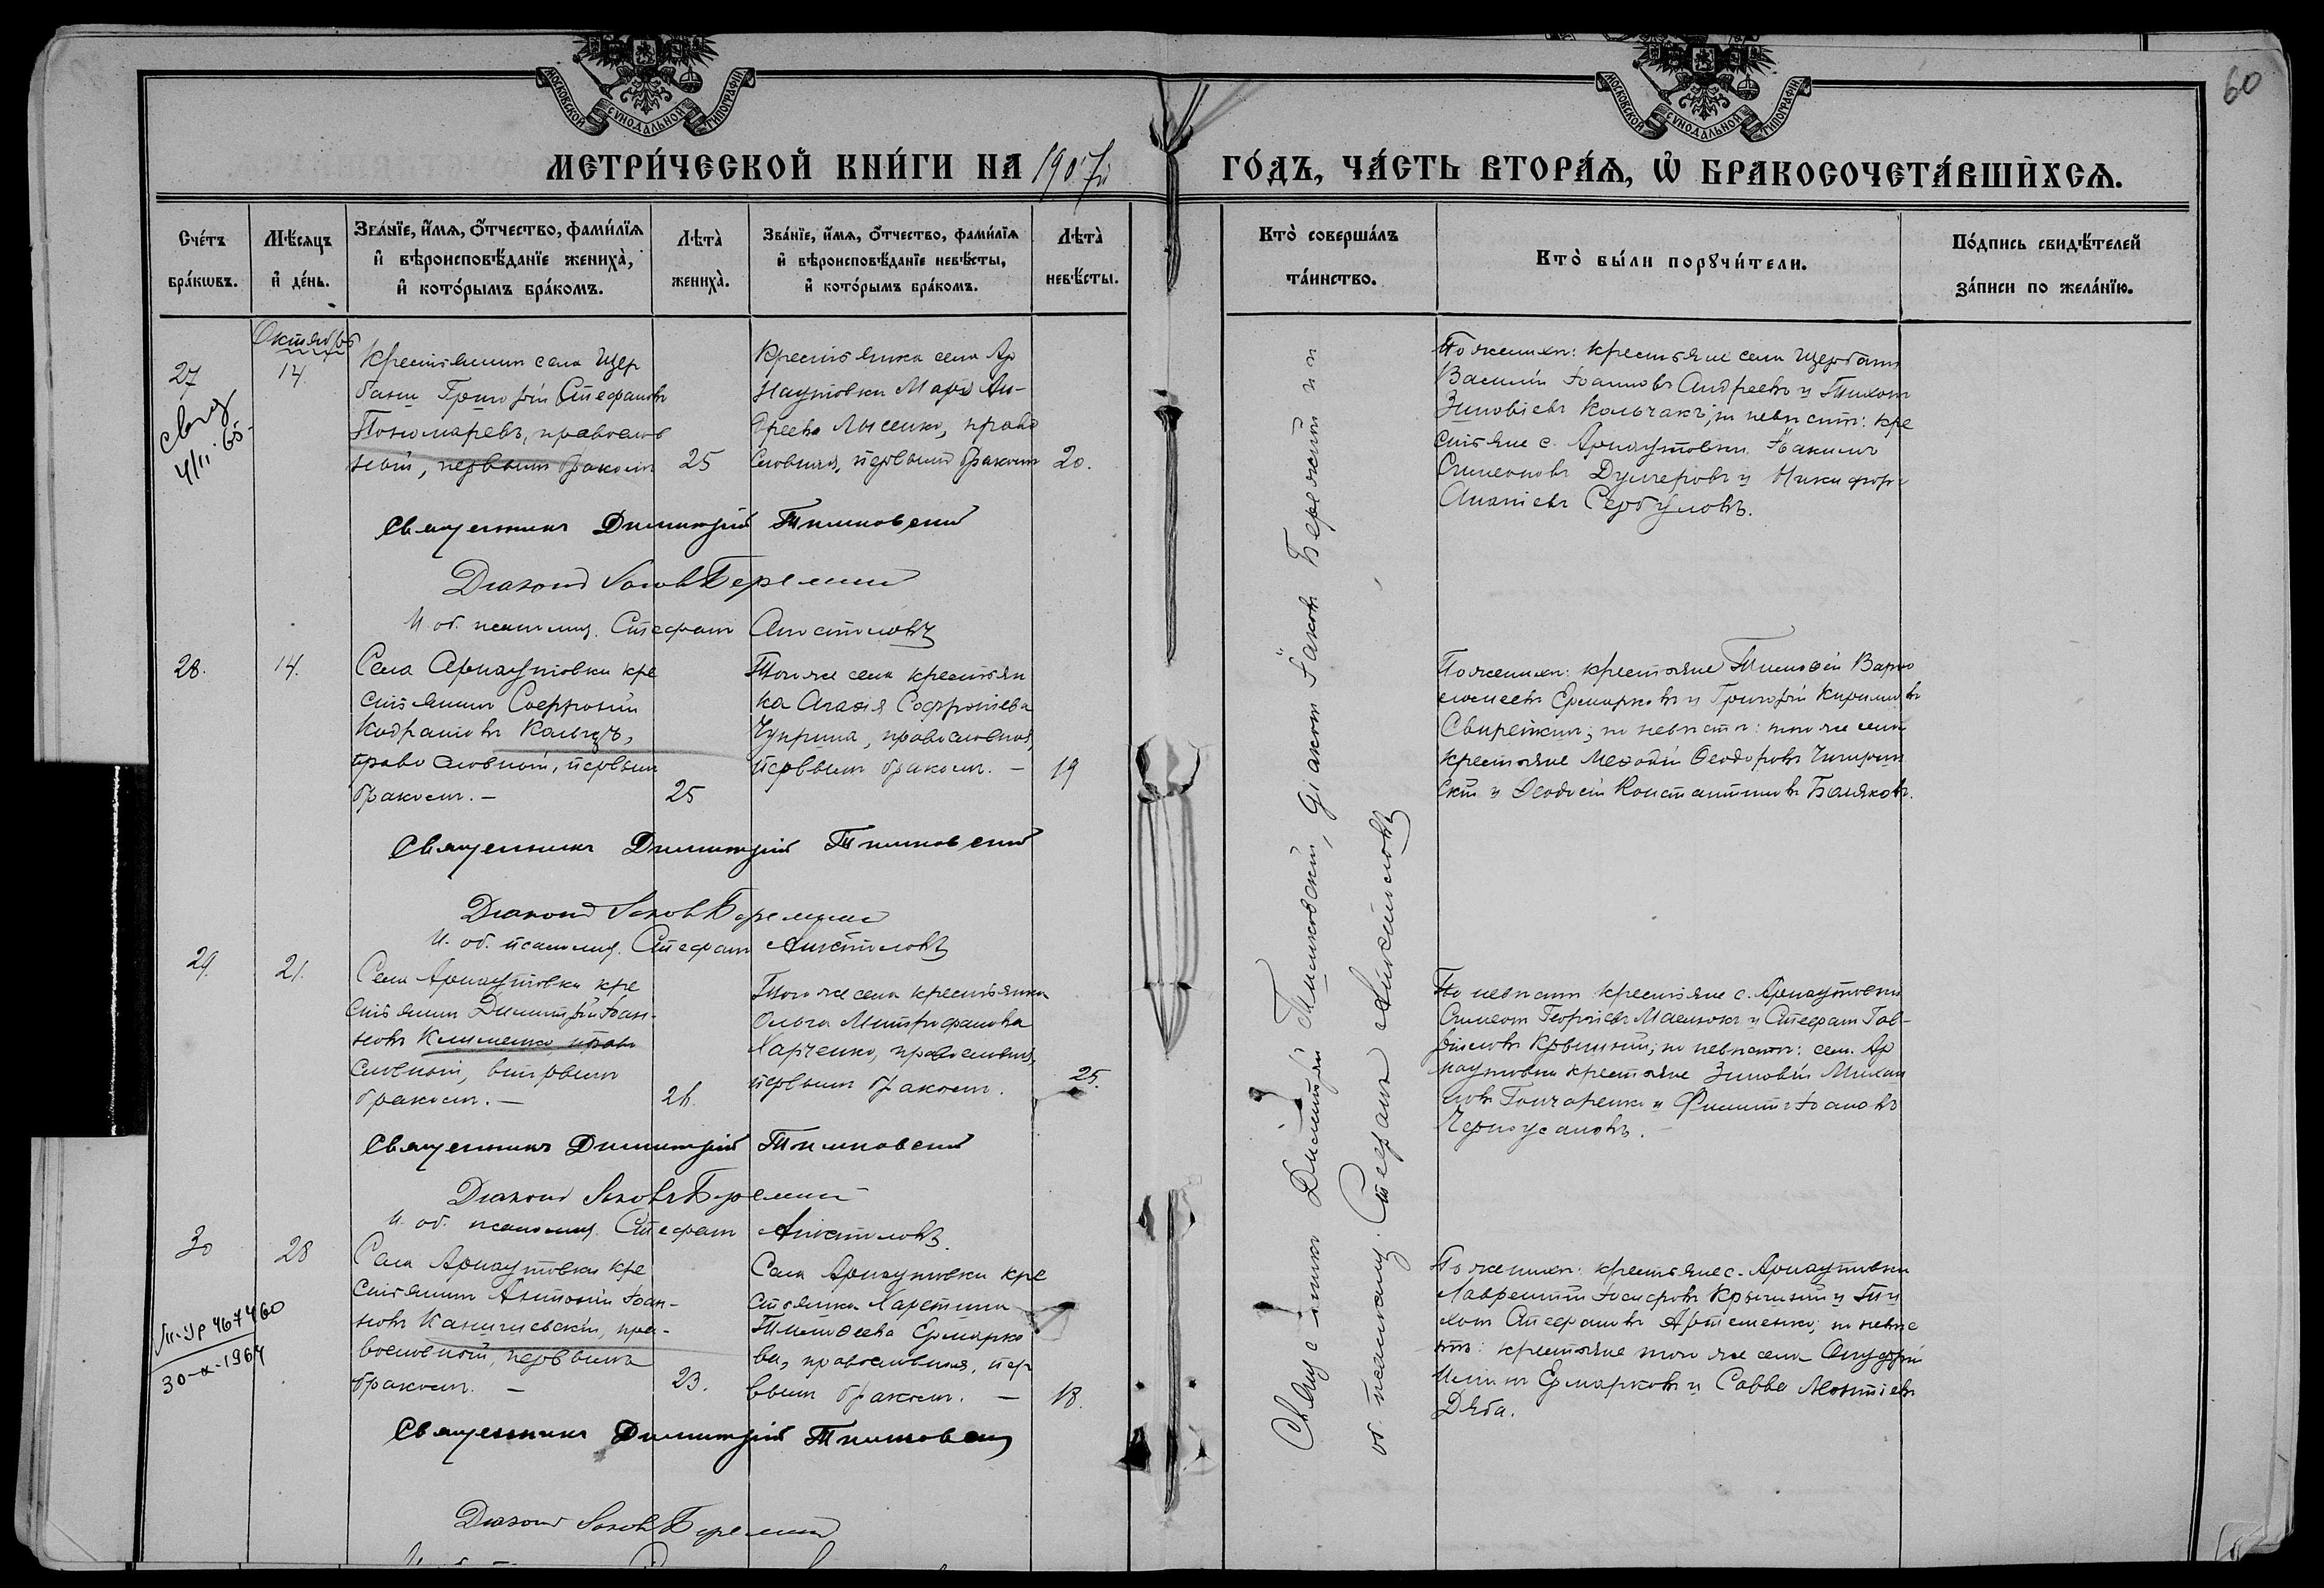 МОСКОВСКОЙ СѴНОДАЛЬНОЙ ТИПОГРАФІИ
МОСКОВСКОЙ СѴНОДАЛЬНОЙ ТИПОГРАФІИ
60
МЕТРИ́ЧЕСКОЙ КНИ́ГИ НА 1907й ГО́ДЪ, ЧА́СТЬ ВТОРА́Я, Ѡ҆ БРАКОСОЧЕТА́ВШИХСЯ.
Сче́тъ бра́кѡвъ.
Мѣ́сяцъ и҆ де́нь.
Зва́нїе, и҆́мя, ѻ҆́тчество, фами́лїя и҆ вѣроисповѣ́данїе жениха̀, и҆ кото́рымъ бра́комъ.
Лѣта̀ жениха̀.
Зва́нїе, и҆́мя, ѻ҆́тчество, фами́лїя и҆ вѣроисповѣ́данїе невѣ́сты, и҆ кото́рымъ бра́комъ.
Лѣта̀ невѣ́сты.
Кто̀ соверша́лъ та́инство.
Кто̀ бы́ли порꙋчи́тели.
По́дпись свидѣ́телей за́писи по жела́нїю.
Октябрь
27
14.
4/II 65.
Крестьянинъ села Щер
бани Григорій Стефановъ
Пономаревъ, православ
ный, первымъ бракомъ
25
Крестьянка села Ар
наутовки Марѳа Ан-
дреева Лысенко, право
славная, первымъ бракомъ
20.
По женихѣ: крестьяне села Щербани
Василій Іоанновъ Андреевъ и Тихонъ
Зиновіевъ Кольчакъ; по невѣстѣ: кре
стьяне с. Арнаутовки Іоакимъ
Симеоновъ Думеровъ и Никифоръ
Ананіевъ Сербуловъ.
Священникъ Димитрій Тишковскій
Діаконъ Іаковъ Бережний
И. об. псаломщ. Стефанъ Апостоловъ
28.
14.
Села Арнаутовки кре
стьянинъ Софроній
Кодратовъ Кальчъ,
православный, первымъ
бракомъ. —
25
Того же села крестьян
ка Агаѳія Софроніева
Чуприна, православная,
первымъ бракомъ. —
19
По женихѣ: крестьяне Тимоѳей Варѳо
ломеевъ Ермарковъ и Григорій Кириловъ
Свирепкинъ; по невѣстѣ: того же села
крестьяне Меѳодій Ѳеодоровъ Чигрин
скій и Ѳеодосій Константиновъ Баляковъ.
Священникъ Димитрій Тишковскій
Діаконъ Іаковъ Бережний
И. об. псаломщ. Стефанъ Апостоловъ
29.
21.
Села Арнаутовки кре
стьянинъ Димитрій Іоан-
новъ Клименко, право
славный, вторымъ
бракомъ. —
26.
Того же села крестьянка
Ольга Митрофанова
Харченко, православная,
первымъ бракомъ.
25.
По женихѣ крестьяне с. Арнаутовки
Симеонъ Георгіевъ Маслюкъ и Стефанъ Гав-
риловъ Крыжній; по невѣстѣ: села Ар
наутовки крестьяне Зиновій Михаи
ловъ Гончаренко и Филиппъ Іоановъ
Черноусановъ.
Священникъ Димитрій Тишковскій
Діаконъ Іаковъ Бережний
И. об. псаломщ. Стефанъ Апостоловъ.
30
28
467460
30-X-1964
Села Арнаутовки кре
стьянинъ Антоній Іоан-
новъ Канигиевскій, пра-
вославный, первымъ
бракомъ. —
23.
Села Арнаутовки кре
стьянка Харетина
Тимоѳеева Ермарко
ва, православная, пер
вымъ бракомъ. —
18.
По женихѣ: крестьяне с. Арнаутовки
Лаврентій Іосифовъ Крыжній и Ти
хонъ Стефановъ Артеменко; по невѣс
тѣ: крестьяне того же села Онуфрій
Ильинъ Ермарковъ и Савва Леонтіевъ
Дзюба.
Священникъ Димитрій Тишковскій
Діаконъ Іаковъ Бережний
Священникъ Димитрій Тишковскій, Діаконъ Іаковъ Бережний и и.
об. псаломщ. Стефанъ Апостоловъ